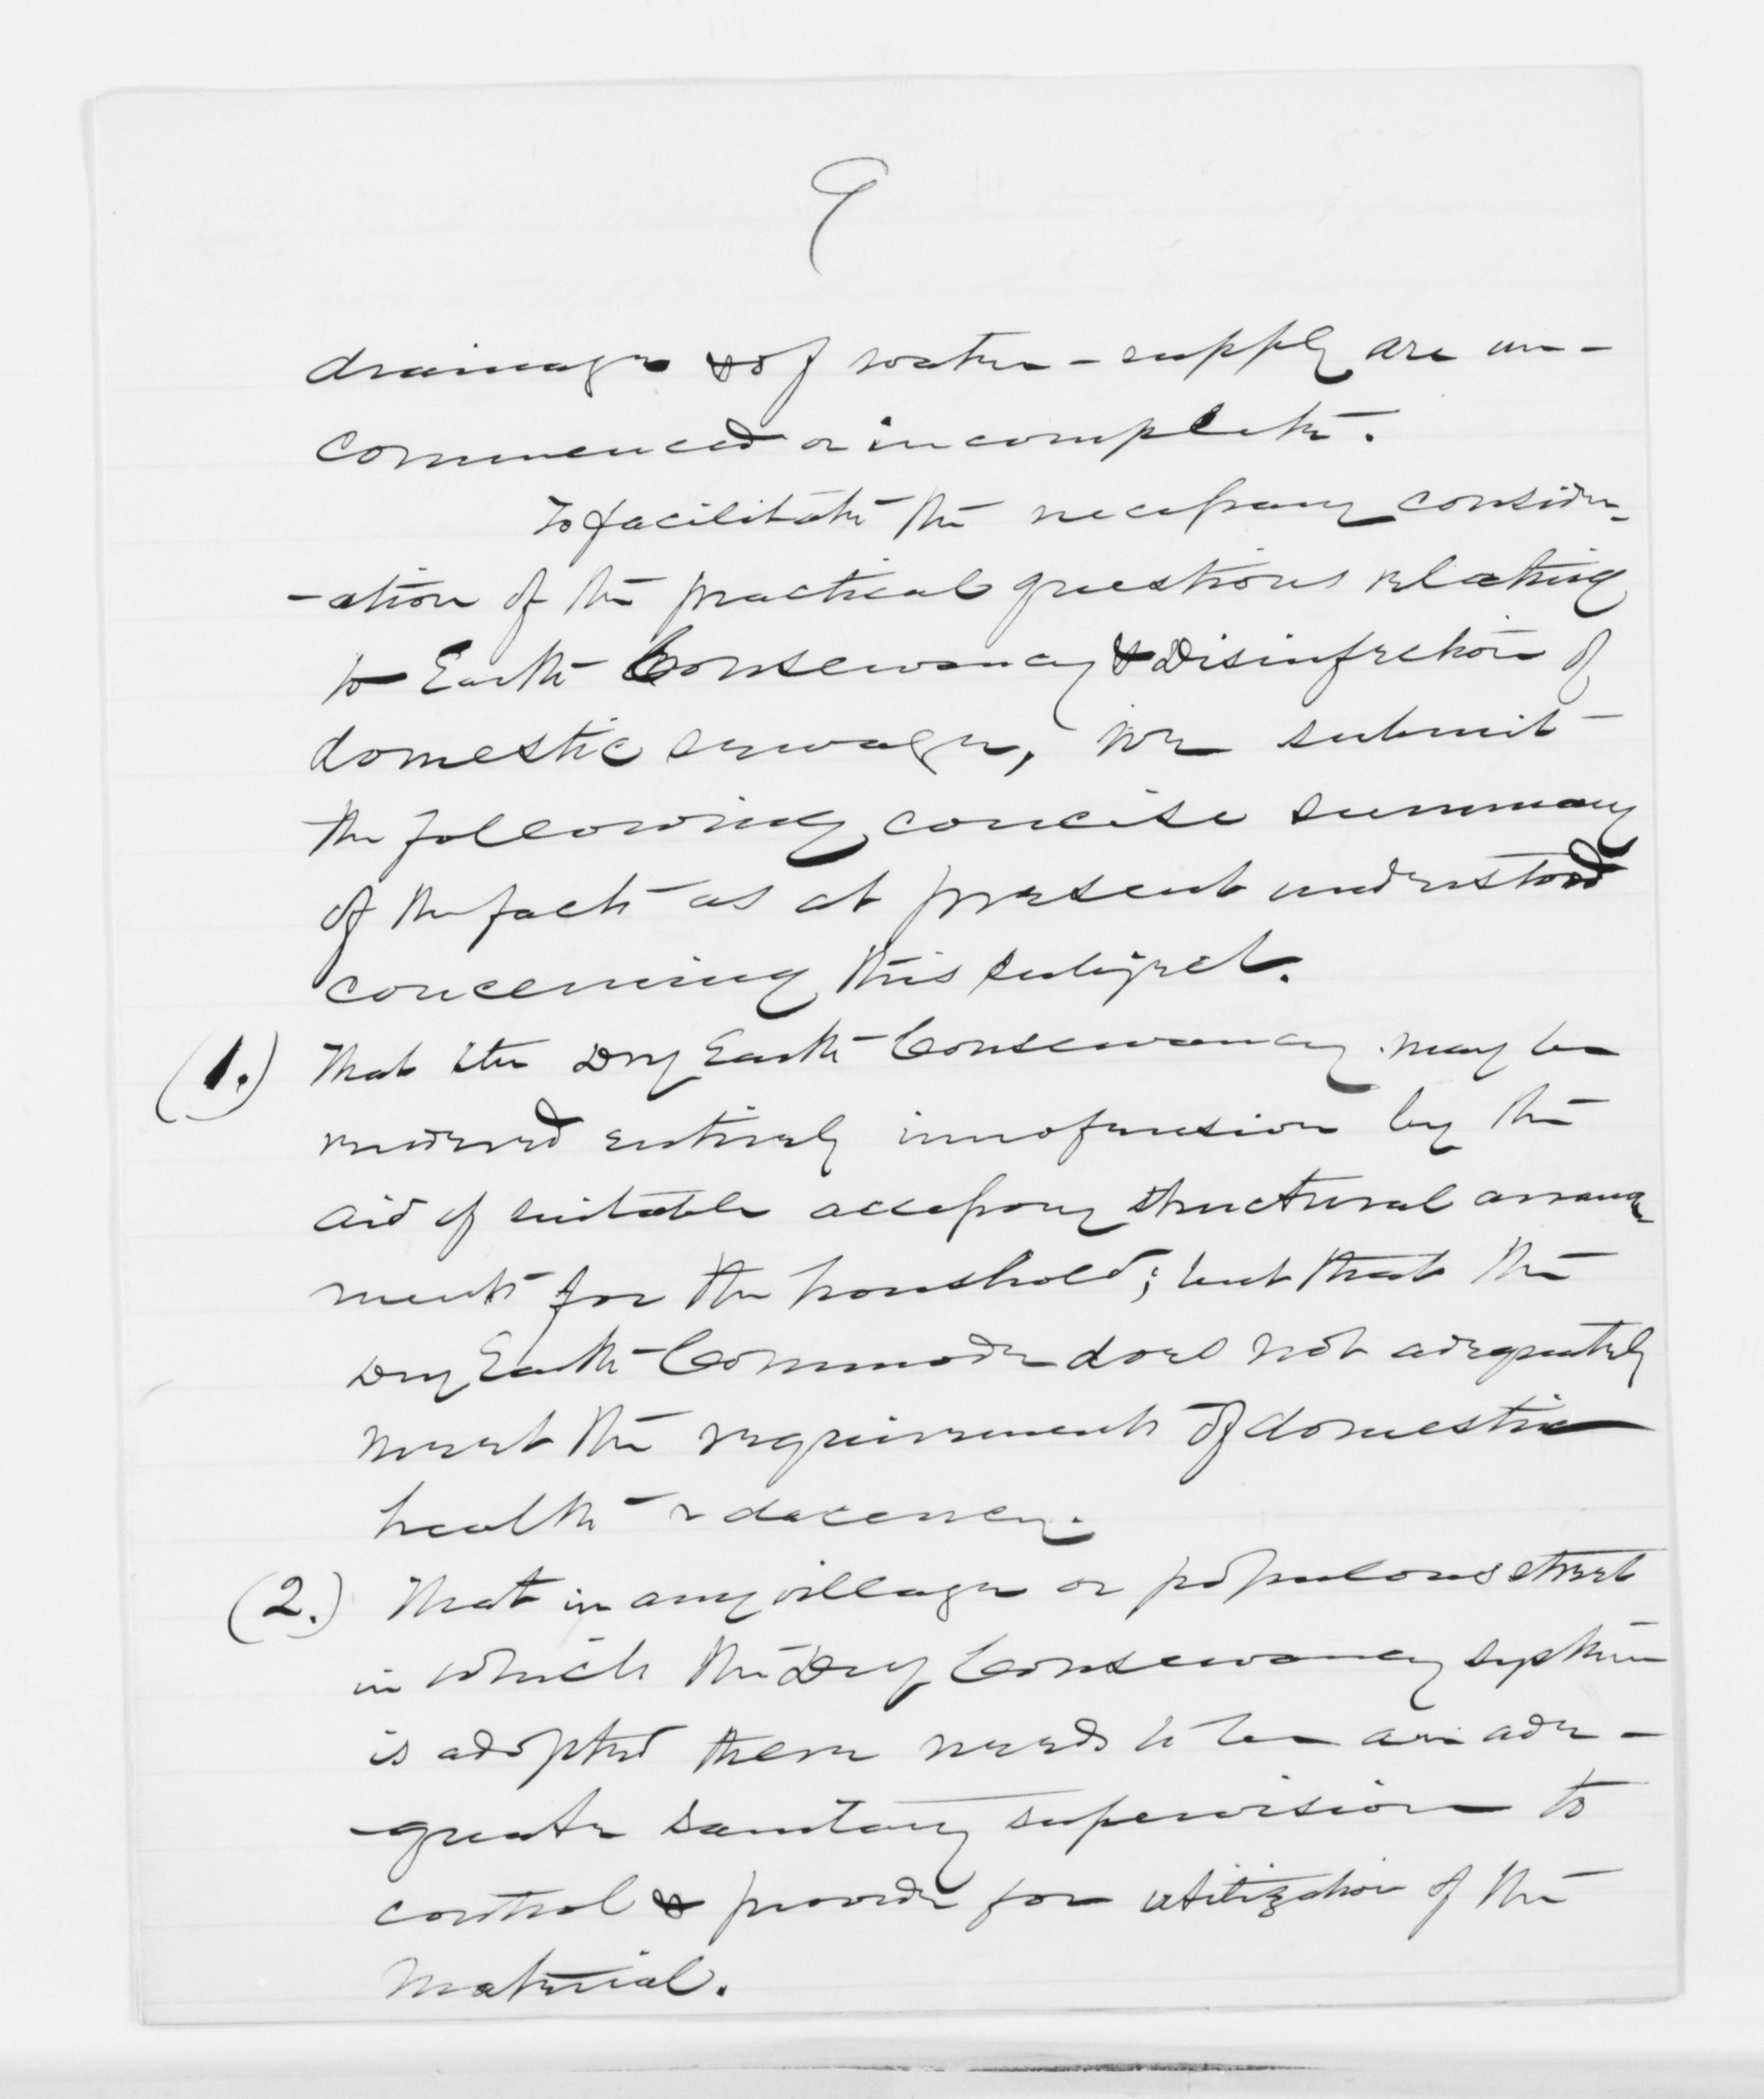 9
drainage & of water-supply are un-
commenced or incomplete.
To facilitate the necessary consider-
-ation of the practical questions relating
to Earth Conservancy & Disinfection of
domestic sewage, we submit
the following concise summary
of the facts as at present understood
concerning this subject.
(1.) That the Dry Earth Conservancy may be
rendered entirely innofensive by the
aid of suitable accessory structural arrange
ments for the household; but that the
Dry Earth Commode does not adequately
meet the requirements of domestic
health & decency.
(2.) That in any village or populous street
in which the Dry Conservancy system
is adopted there needs to be an ade-
-quate sanitary supervision to
control & provide for utilization of the
material.